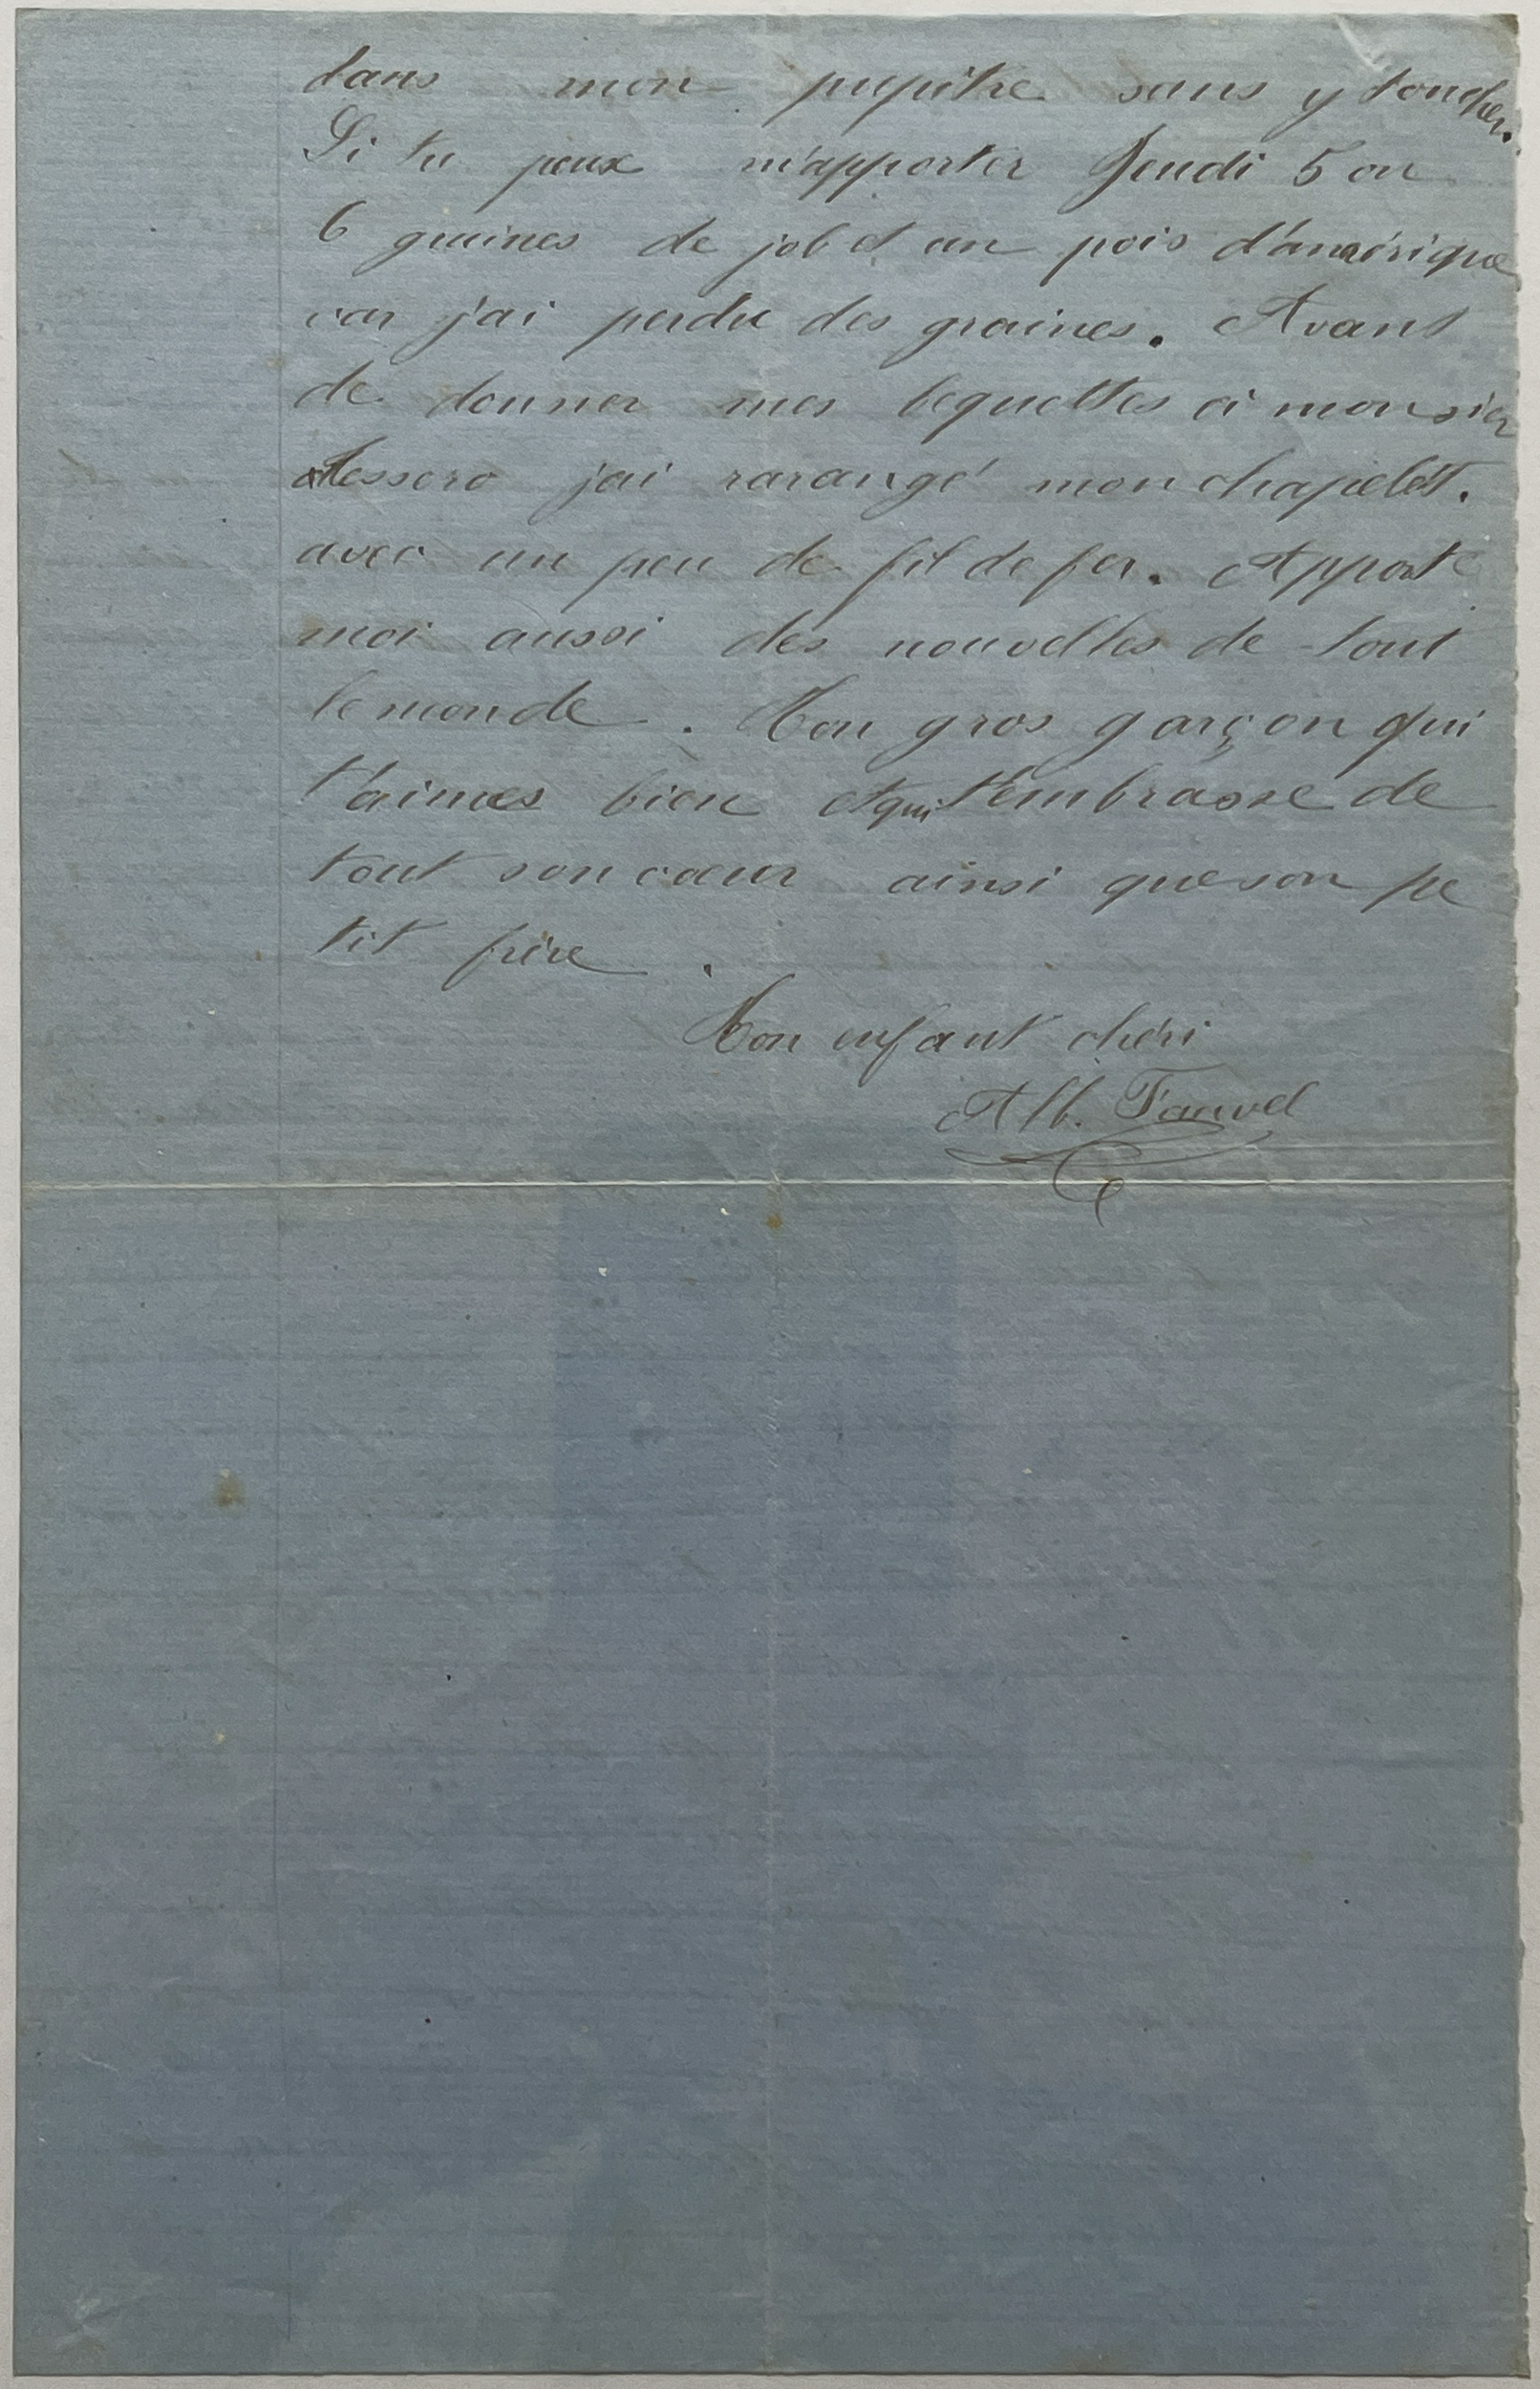 dans mon pupitre sans y toucher.
Si tu peux m'apporter Jeudi 5 ou
6 graines de job et un pois d'amérique
car j'ai perdu des graines. Avant
de donner mes bequettes à monsier
j'ai rarangé mon chapelet.
avec un peu de fil de fer. Apporte
moi aussi des nouvelles de tout
le monde. Ton gros garçon qui
t'aimes bien et qui t'embrasse de
tout son cœur ainsi que son pe
tit frère.
Ton enfant chéri
Alb. Fauvel